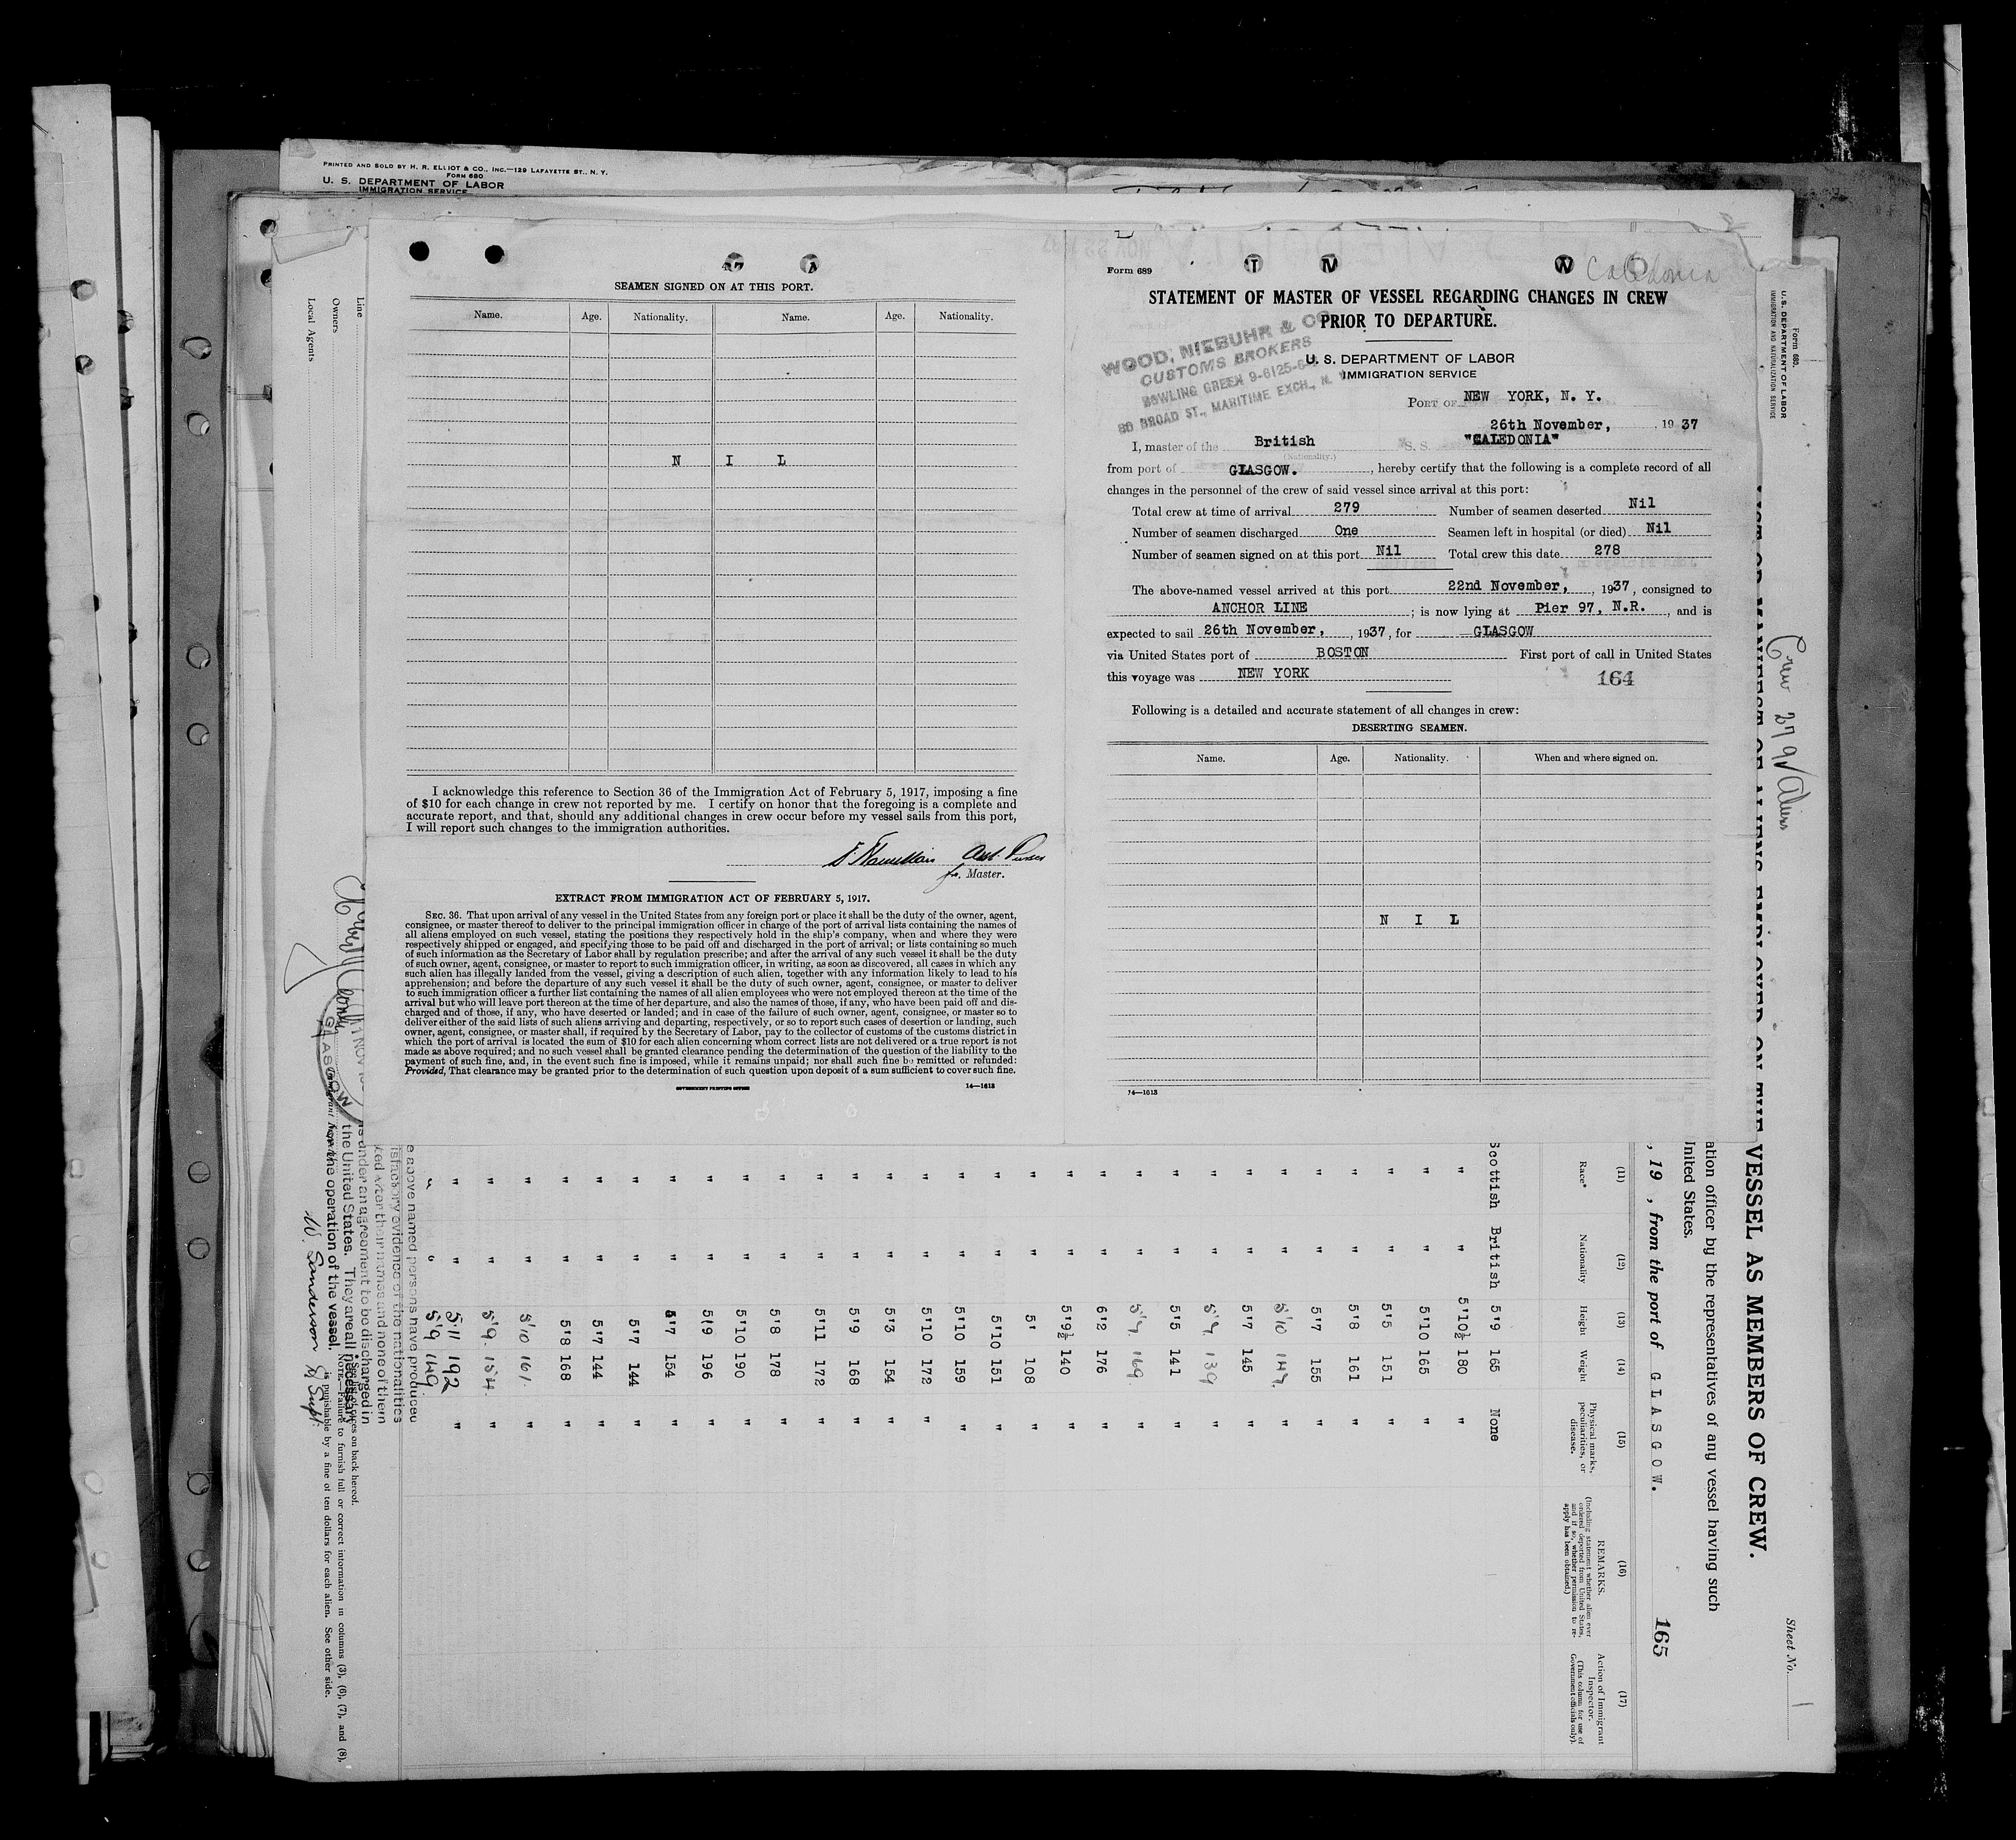 PRINTED AND SOLD BY H. R. ELLIOT & CO., INC.—129 LAFAYETTE ST., N. Y.
FORM 680
U. S. DEPARTMENT OF LABOR
IMMIGRATION SERVICE
SEAMEN SIGNED ON AT THIS PORT.
Name. Age. Nationality. Name. Age. Nationality.
N I L
I acknowledge this reference to Section 36 of the Immigration Act of February 5, 1917, imposing a fine
of $10 for each change in crew not reported by me. I certify on honor that the foregoing is a complete and
accurate report, and that, should any additional changes in crew occur before my vessel sails from this port,
I will report such changes to the immigration authorities.
Asst. Purser
for. Master.
EXTRACT FROM IMMIGRATION ACT OF FEBRUARY 5, 1917.
SEC. 36. That upon arrival of any vessel in the United States from any foreign port or place it shall be the duty of the owner, agent,
consignee, or master thereof to deliver to the principal immigration officer in charge of the port of arrival lists containing the names of
all aliens employed on such vessel, stating the positions they respectively hold in the ship's company, when and where they were
respectively shipped or engaged, and specifying those to be paid off and discharged in the port of arrival; or lists containing so much
of such information as the Secretary of Labor shall by regulation prescribe; and after the arrival of any such vessel it shall be the duty
of such owner, agent, consignee, or master to report to such immigration officer, in writing, as soon as discovered, all cases in which any
such alien has illegally landed from the vessel, giving a description of such alien, together with any information likely to lead to his
apprehension; and before the departure of any such vessel it shall be the duty of such owner, agent, consignee, or master to deliver
to such immigration officer a further list containing the names of all alien employees who were not employed thereon at the time of the
arrival but who will leave port thereon at the time of her departure, and also the names of those, if any, who have been paid off and dis-
charged and of those, if any, who have deserted or landed; and in case of the failure of such owner, agent, consignee, or master so to
deliver either of the said lists of such aliens arriving and departing, respectively, or so to report such cases of desertion or landing, such
owner, agent, consignee, or master shall, if required by the Secretary of Labor, pay to the collector of customs of the customs district in
which the port of arrival is located the sum of $10 for each alien concerning whom correct lists are not delivered or a true report is not
made as above required; and no such vessel shall be granted clearance pending the determination of the question of the liability to the
payment of such fine, and, in the event such fine is imposed, while it remains unpaid; nor shall such fine be remitted or refunded:
Provided, That clearance may be granted prior to the determination of such question upon deposit of a sum sufficient to cover such fine.
GOVERNMENT PRINTING OFFICE 14—1613
Form 689
Caledonia
STATEMENT OF MASTER OF VESSEL REGARDING CHANGES IN CREW
PRIOR TO DEPARTURE.
WOOD, NIEBUHR & CO
CUSTOMS BROKERS
BOWLING GREEN 9-6125-6
80 BROAD ST., MARITIME EXCH., N. Y.
U. S. DEPARTMENT OF LABOR
IMMIGRATION SERVICE
PORT OF NEW YORK, N. Y.
26th November, 1937
I, master of the British S. S. "CALEDONIA"
(Nationality.)
from port of GLASGOW. , hereby certify that the following is a complete record of all
changes in the personnel of the crew of said vessel since arrival at this port:
Total crew at time of arrival 279 Number of seamen deserted Nil
Number of seamen discharged One Seamen left in hospital (or died) Nil
Number of seamen signed on at this port Nil Total crew this date 278
The above-named vessel arrived at this port 22nd November, , 1937, consigned to
ANCHOR LINE ; is now lying at Pier 97, N.R. , and is
expected to sail 26th November, , 1937, for GLASGOW
via United States port of BOSTON First port of call in United States
this voyage was NEW YORK
164
Following is a detailed and accurate statement of all changes in crew:
DESERTING SEAMEN.
Name. Age. Nationality. When and where signed on.
N I L
14—1613
Form 680.
U. S. DEPARTMENT OF LABOR
IMMIGRATION AND NATURALIZATION SERVICE
Crew 279 Aliens
Sheet No. 1
LIST OR MANIFEST OF ALIENS EMPLOYED ON THE VESSEL AS MEMBERS OF CREW.
ation officer by the representatives of any vessel having such
nited States.
, 19 , from the port of GLASGOW.
165
(11) (12) (13) (14) (15) (16) (17)
Race* Nationality Height Weight Physical marks, peculiarities, or disease. REMARKS. (Including statement whether alien ever ordered deported from United States, and if so, whether permission to re-apply has been obtained.) Action of Immigrant Inspector. (This column for use of Government officials only).
Scottish British 5'9 165 None
" " 5'10½ 180 "
" " 5'10 165 "
" " 5'5 151 "
" " 5'8 161 "
" " 5'7 155 "
" " 5'10 149. "
" " 5'7 145 "
" " 5'9. 139 "
" " 5'5 141 "
" " 5'9. 169. "
" " 6'2 176 "
" " 5'9½ 140 "
" " 5' 108 "
" " 5'10 151 "
" " 5'10 159 "
" " 5'10 172 "
" " 5'3 154 "
" " 5'9 168 "
" " 5'11 172 "
" " 5'8 178 "
" " 5'10 190 "
" " 5'9 196 "
" " 5'7 154 "
" " 5'7 144 "
" " 5'7 144 "
" " 5'8 168 "
" " 5'10 161. "
" " 5'9. 154. "
" " 5.11 192 "
" " 5'9 149.
e above named persons have produced
isfactory evidence of the nationalities
ted after their names and none of them
is under an agreement to be discharged in
the United States. They are all necessary
for the operation of the vessel.
W. Sanderson
* See list of races on back hereof.
NOTE.—Failure to furnish full or correct information in columns (3), (6), (7), and (8),
is punishable by a fine of ten dollars for each alien. See other side.
GLASGOW
NOV
Line
Owners
Local Agents